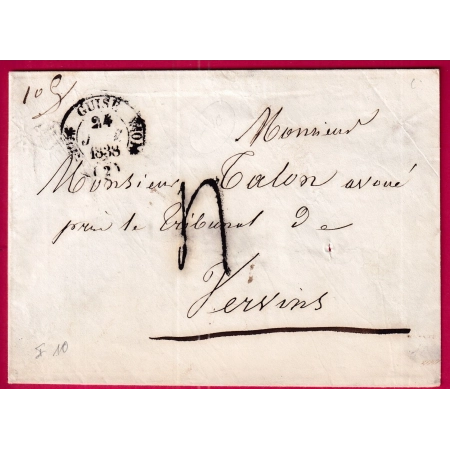 GUISE
24
1838
(2)
Monsieur
Monsieur Talon avoué
près le Tribunal De
Vervins
10